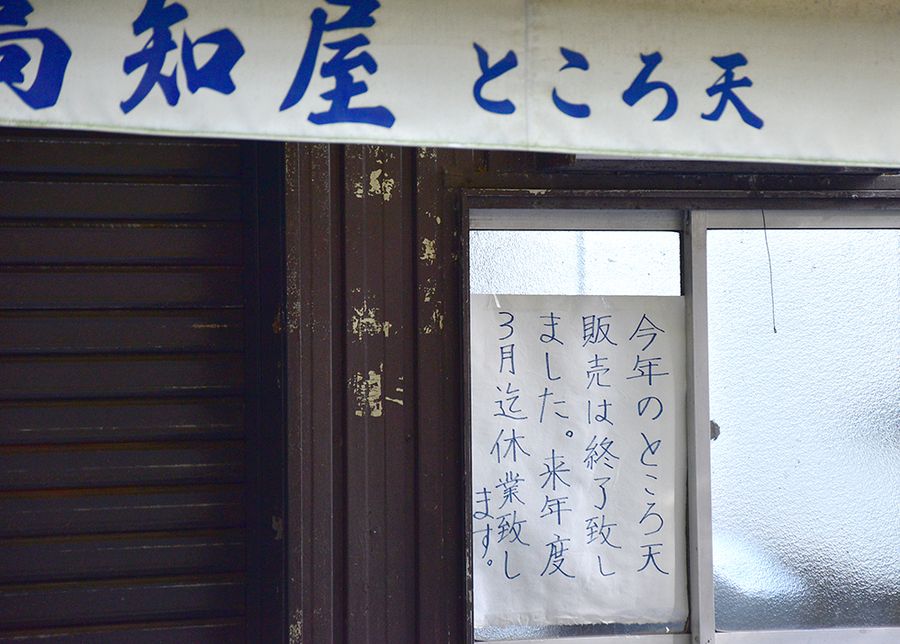 高知屋 ところ天
今年のところ天
販売は終了致し
ました。来年度
3月迄休業致し
ます。